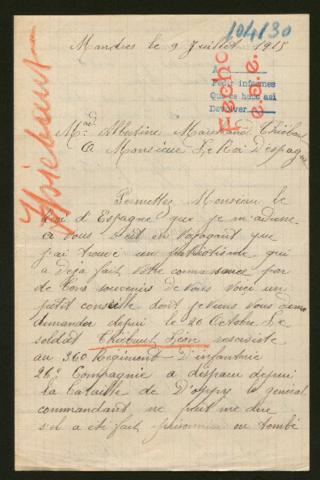 104130
Mandres le 9 Juillet 1915
A
Pedir informes
Que se hace asi
Devolver
Fecho
Thiebaut
Mad Albertine Marchand Thiébaut
A Monsieur Le Roi D'espagne
Permettez Monsieur le
Roi d'Espagne que je m'adresse
à Vous c'est en voyageant que
j'ai trouvé un patriotisme qui
a déja fait votre connaissance par
de bons souvenirs de vous voici un
petit conseille dont je viens vous
demander depuis le 20 Octobre Le
soldat Thiébaut Léon reserviste
au 360 Regiment d'infanterie
26e Compagnie a disparu depuis
la bataille de D'oppy le général
commandant ne peut me dire
s'il a été fait prisonnier ou tombé